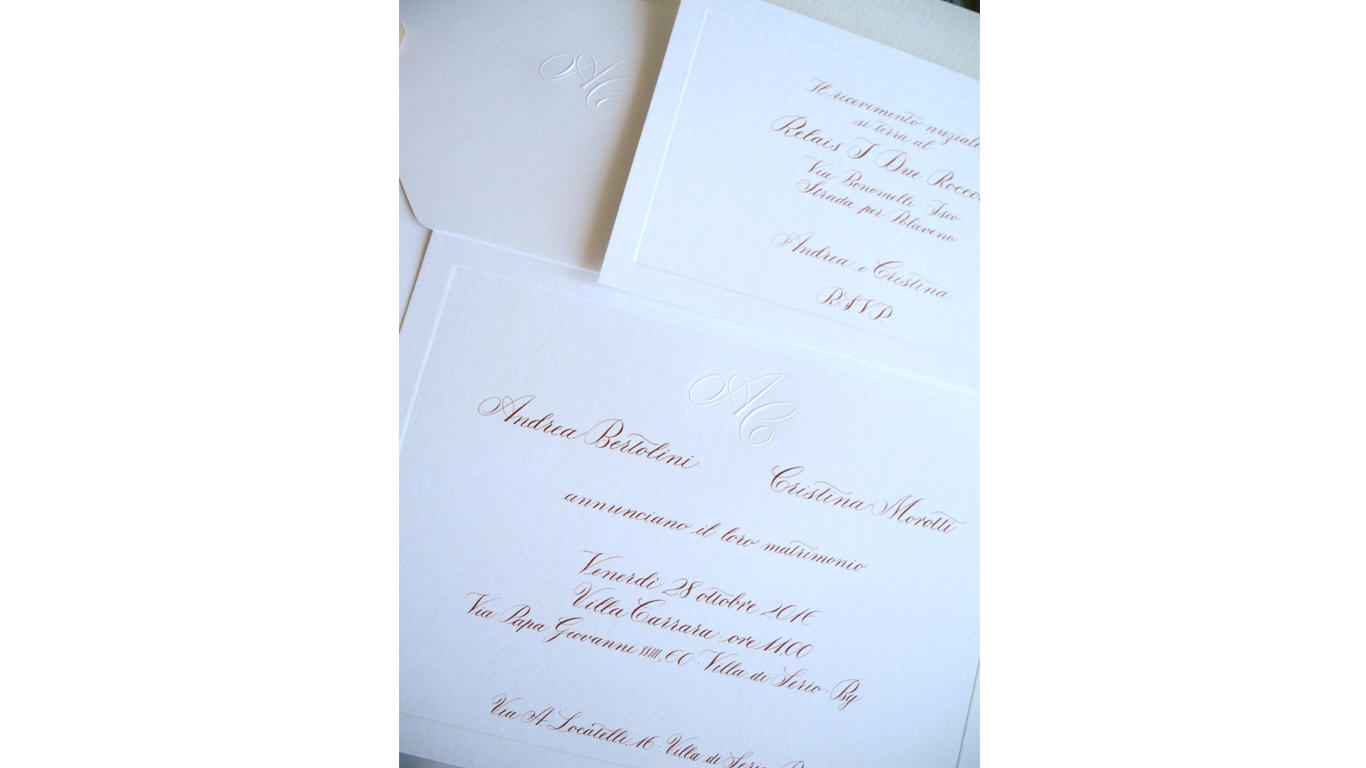 AC
Il ricevimento nuziale
si terrà al
Relais I Due Roccoli
Via Bonomelli Iseo
Strada per Polaveno
Andrea e Cristina
RSVP
AC
Andrea Bertolini
Cristina Morotti
annunciano il loro matrimonio
Venerdì 28 ottobre 2016
Villa Carrara · ore 11,00
Via Papa Giovanni XXIII, 60 · Villa di Serio · Bg
Via A. Locatelli, 16 · Villa di Serio